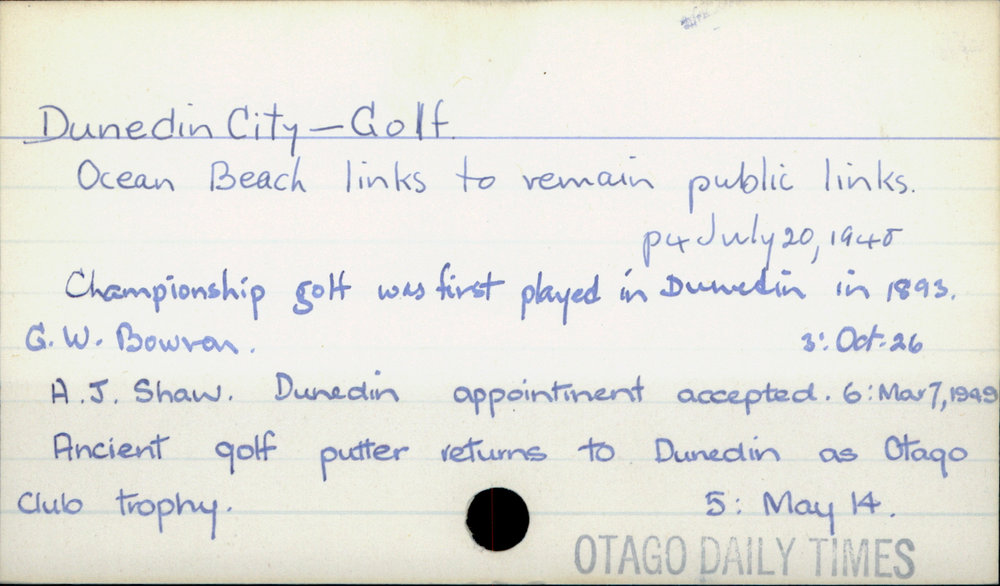 Dunedin City – Golf.
Ocean Beach links to remain public links.
p4 July 20, 1940
Championship golf was first played in Dunedin in 1893.
G. W. Bowron. 3: Oct. 26
A. J. Shaw. Dunedin appointment accepted. 6: Mar 7, 1949
Ancient golf putter returns to Dunedin as Otago
Club trophy. 5: May 14.
OTAGO DAILY TIMES